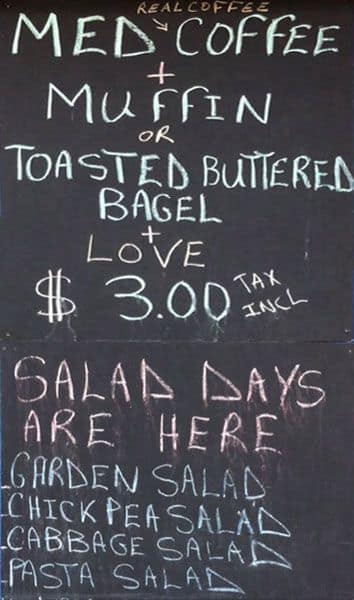 REAL COFFEE
MED COFFEE
+
MUFFIN
OR
TOASTED BUTTERED
BAGEL
+
LOVE
$ 3.00 TAX INCL
SALAD DAYS
ARE HERE
-GARDEN SALAD
-CHICK PEA SALAD
-CABBAGE SALAD
-PASTA SALAD